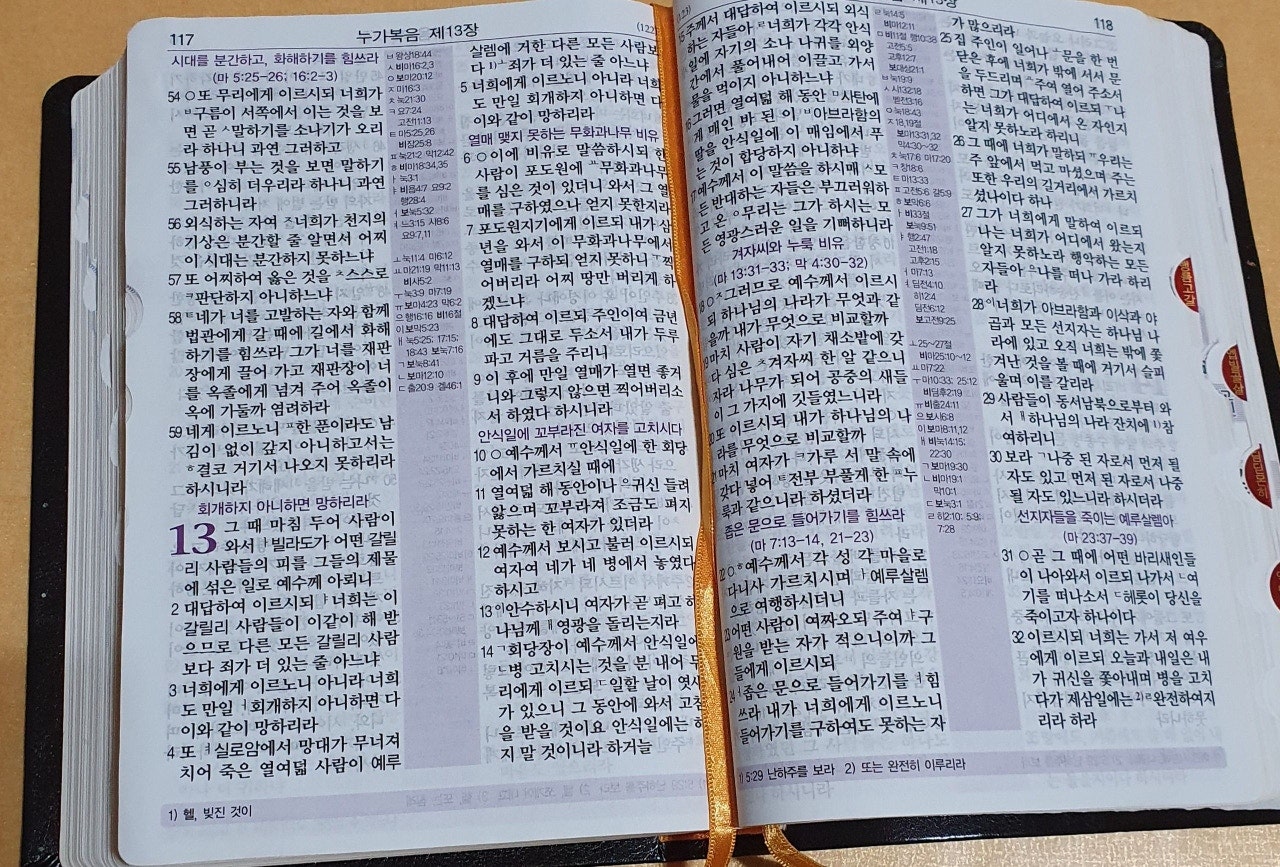 117
누가복음 제13장
(122
시대를 분간하고, 화해하기를 힘쓰라
(마 5:25-26; 16:2-3)
54 ○또 무리에게 이르시되 너희가
구름이 서쪽에서 이는 것을 보
면 곧 말하기를 소나기가 오리
라 하나니 과연 그러하고
55 남풍이 부는 것을 보면 말하기
를 심히 더우리라 하나니 과연
그러하니라
56 외식하는 자여 너희가 천지의
기상은 분간할 줄 알면서 어찌
이 시대는 분간하지 못하느냐
57 또 어찌하여 옳은 것을 스스로
판단하지 아니하느냐
58 네가 너를 고발하는 자와 함께
법관에게 갈 때에 길에서 화해
하기를 힘쓰라 그가 너를 재판
장에게 끌어 가고 재판장이 너
를 옥졸에게 넘겨 주어 옥졸이
옥에 가둘까 염려하라
59 네게 이르노니 한 푼이라도 남
김이 없이 갚지 아니하고서는
결코 거기서 나오지 못하리라
하시니라
회개하지 아니하면 망하리라
13 그 때 마침 두어 사람이
와서 빌라도가 어떤 갈릴
리 사람들의 피를 그들의 제물
에 섞은 일로 예수께 아뢰니
2 대답하여 이르시되 너희는 이
갈릴리 사람들이 이같이 해 받
으므로 다른 모든 갈릴리 사람
보다 죄가 더 있는 줄 아느냐
3 너희에게 이르노니 아니라 너희
도 만일 회개하지 아니하면 다
이와 같이 망하리라
4 또 실로암에서 망대가 무너져
치어 죽은 열여덟 사람이 예루
ㅂ 왕상18:44
ㅅ 비마16:2,3
ㅇ 보마20:12
ㅈ 마16:3
ㅊ 눅21:30
ㅋ 요7:24
고전11:13
ㅌ 마5:25,26
비잠25:8
ㅍ 눅21:2 막12:42
ㅎ 비마18:34,35
ㅏ 눅3:1
ㅑ 비욥4:7 요9:2
행28:4
ㅓ 보눅5:32
ㅕ 느3:15 사8:6
요9:7,11
ㅗ 눅11:4 마6:12
ㅛ 마21:19 막11:13
비사5:2
ㅜ 눅3:9 마7:19
ㅠ 보마4:23 막6:2
ㅡ 행16:16 비16절
ㅣ 보막5:23
ㅐ 눅5:25; 17:15;
18:43 보눅7:16
ㄱ 보눅8:41
ㄴ 보마12:10
ㄷ 출20:9 겔46:1
살렘에 거한 다른 모든 사람보
다 1)죄가 더 있는 줄 아느냐
5 너희에게 이르노니 아니라 너희
도 만일 회개하지 아니하면 다
이와 같이 망하리라
열매 맺지 못하는 무화과나무 비유
6 ○이에 비유로 말씀하시되 한
사람이 포도원에 무화과나무
를 심은 것이 있더니 와서 그 열
매를 구하였으나 얻지 못한지라
7 포도원지기에게 이르되 내가 삼
년을 와서 이 무화과나무에서
열매를 구하되 얻지 못하니 찍
어버리라 어찌 땅만 버리게 하
겠느냐
8 대답하여 이르되 주인이여 금년
에도 그대로 두소서 내가 두루
파고 거름을 주리니
9 이 후에 만일 열매가 열면 좋거
니와 그렇지 않으면 찍어버리소
서 하였다 하시니라
안식일에 꼬부라진 여자를 고치시다
10 ○예수께서 안식일에 한 회당
에서 가르치실 때에
11 열여덟 해 동안이나 귀신 들려
앓으며 꼬부라져 조금도 펴지
못하는 한 여자가 있더라
12 예수께서 보시고 불러 이르시되
여자여 네가 네 병에서 놓였다
하시고
13 안수하시니 여자가 곧 펴고 하
나님께 영광을 돌리는지라
14 회당장이 예수께서 안식일에
병 고치시는 것을 분 내어 무
리에게 이르되 일할 날이 엿새
가 있으니 그 동안에 와서 고침
을 받을 것이요 안식일에는 하
지 말 것이니라 하거늘
1) 헬, 빚진 것이
118
주께서 대답하여 이르시되 외식
하는 자들아 너희가 각각 안식
일에 자기의 소나 나귀를 외양
간에서 풀어내어 이끌고 가서
물을 먹이지 아니하느냐
그러면 열여덟 해 동안 사탄에
게 매인 바 된 이 아브라함의
딸을 안식일에 이 매임에서 푸
는 것이 합당하지 아니하냐
예수께서 이 말씀을 하시매 모
든 반대하는 자들은 부끄러워하
고 온 무리는 그가 하시는 모
든 영광스러운 일을 기뻐하니라
겨자씨와 누룩 비유
(마 13:31-33; 막 4:30-32)
○그러므로 예수께서 이르시
되 하나님의 나라가 무엇과 같
을까 내가 무엇으로 비교할까
마치 사람이 자기 채소밭에 갖
다 심은 겨자씨 한 알 같으니
자라 나무가 되어 공중의 새들
이 그 가지에 깃들였느니라
또 이르시되 내가 하나님의 나
라를 무엇으로 비교할까
마치 여자가 가루 서 말 속에
갖다 넣어 전부 부풀게 한 누
룩과 같으니라 하셨더라
좁은 문으로 들어가기를 힘쓰라
(마 7:13-14, 21-23)
22 ○예수께서 각 성 각 마을로
다니사 가르치시며 예루살렘
으로 여행하시더니
어떤 사람이 여짜오되 주여 구
원을 받는 자가 적으니이까 그
들에게 이르시되
좁은 문으로 들어가기를 힘
쓰라 내가 너희에게 이르노니
들어가기를 구하여도 못하는 자
ㄹ 눅14:5
비마12:11
ㅁ 비11절 행10:38
고전5:5
고후12:7
보대상21:1
ㅂ 눅19:9
ㅅ 시132:18
벧전3:16
ㅇ 눅18:43
ㅈ 18,19절
보마13:31,32
막4:30~32
ㅊ 눅17:6 마17:20
ㅋ 창18:6
ㅌ 마13:33
ㅍ 고전5:6 갈5:9
ㅎ 보막6:6
ㅏ 비33절
보눅9:51
ㅑ 행2:47
고전1:18
고후2:15
ㅓ 마7:13
ㅕ 딤전4:10
히12:4
딤전6:12
보고전9:25
ㅗ 25~27절
비마25:10~12
ㅛ 마7:22
ㅜ 마10:33; 25:12
비딤후2:19
ㅠ 비출24:11
ㅡ 보사6:8
ㅣ 보마8:11,12
ㅐ 비눅14:15;
22:30
ㄱ 보마19:30
ㄴ 비마19:1
막10:1
ㄷ 보눅3:1
ㄹ 히2:10; 5:9;
7:28
가 많으리라
25 집 주인이 일어나 문을 한 번
닫은 후에 너희가 밖에 서서 문
을 두드리며 주여 열어 주소서
하면 그가 대답하여 이르되 나
는 너희가 어디에서 온 자인지
알지 못하노라 하리니
26 그 때에 너희가 말하되 우리는
주 앞에서 먹고 마셨으며 주는
또한 우리의 길거리에서 가르치
셨나이다 하나
27 그가 너희에게 말하여 이르되
나는 너희가 어디에서 왔는지
알지 못하노라 행악하는 모든
자들아 나를 떠나 가라 하리
라
28 너희가 아브라함과 이삭과 야
곱과 모든 선지자는 하나님 나
라에 있고 오직 너희는 밖에 쫓
겨난 것을 볼 때에 거기서 슬피
울며 이를 갈리라
29 사람들이 동서남북으로부터 와
서 하나님의 나라 잔치에 1)참
여하리니
30 보라 나중 된 자로서 먼저 될
자도 있고 먼저 된 자로서 나중
될 자도 있느니라 하시더라
선지자들을 죽이는 예루살렘아
(마 23:37-39)
31 ○곧 그 때에 어떤 바리새인들
이 나아와서 이르되 나가서 여
기를 떠나소서 헤롯이 당신을
죽이고자 하나이다
32 이르시되 너희는 가서 저 여우
에게 이르되 오늘과 내일은 내
가 귀신을 쫓아내며 병을 고치
다가 제삼일에는 2)완전하여지
리라 하라
1) 5:29 난하주를 보라 2) 또는 완전히 이루리라